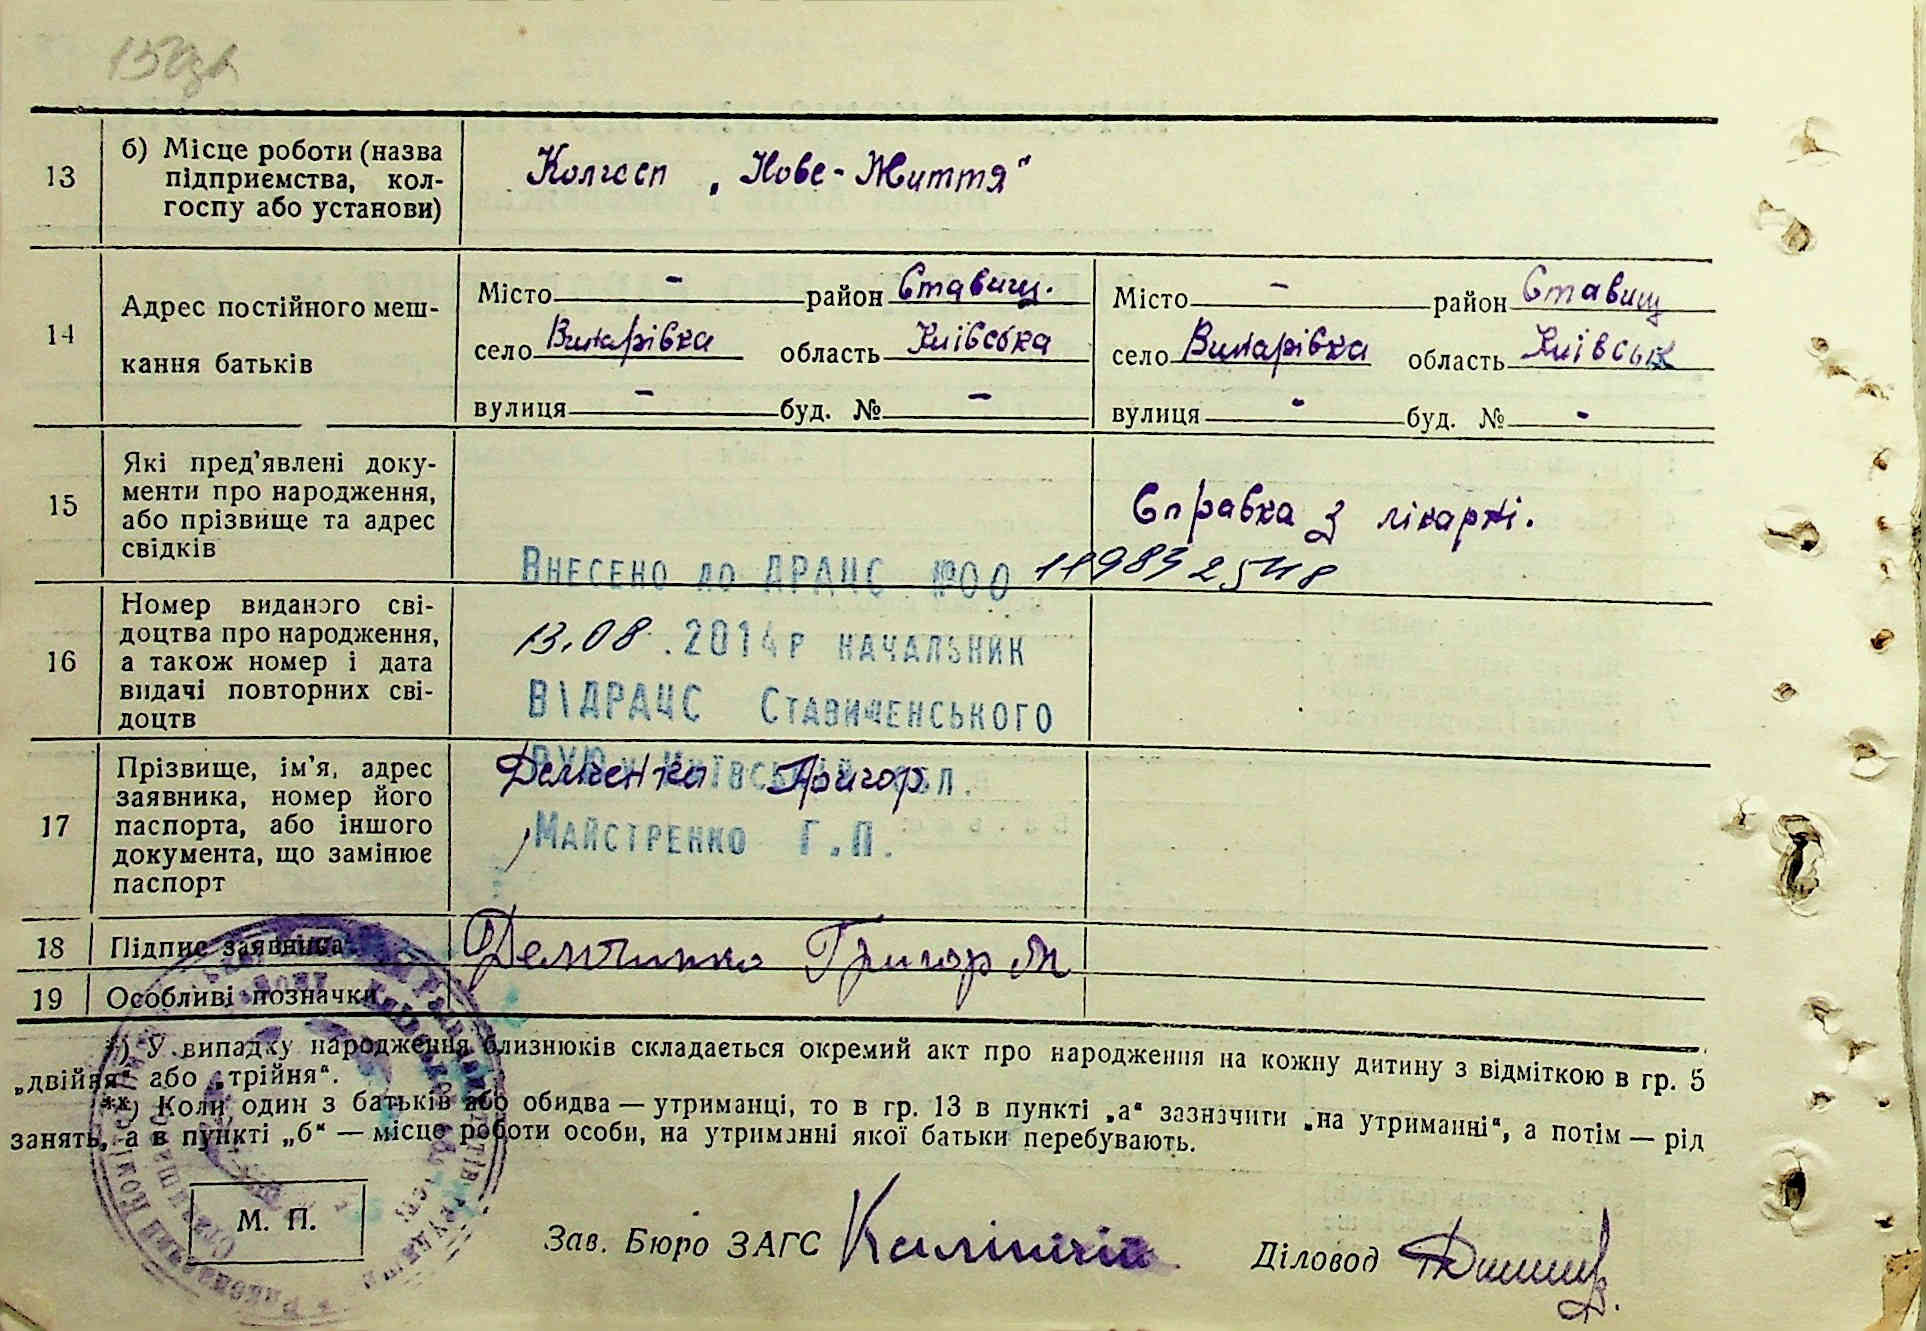 13
б) Місце роботи (назва
підприємства, кол-
госпу або установи)
Колгосп „Нове-Життя“
14
Адрес постійного меш-
кання батьків
Місто - район Ставищ.
село Винарівка область Київська
вулиця - буд. № -
Місто - район Ставищ
село Винарівка область Київськ
вулиця - буд. № -
15
Які пред’явлені доку-
менти про народження,
або прізвище та адрес
свідків
Справка з лікарні.
16
Номер виданого сві-
доцтва про народження,
а також номер і дата
видачі повторних сві-
доцтв
Внесено до ДРАЦС №00
13.08.2014р начальник
ВІДРАЦС Ставищенського
РУЮ у Київській обл.
Майстренко Г.П.
17
Прізвище, ім’я, адрес
заявника, номер його
паспорта, або іншого
документа, що замінює
паспорт
Григор
18 Підпис заявника
Григор
19 Особливі позначки
*) У випадку народження близнюків складається окремий акт про народження на кожну дитину з відміткою в гр. 5
„двійня“ або „трійня“.
**) Коли один з батьків або обидва — утриманці, то в гр. 13 в пункті „а“ зазначити „на утриманні“, а потім — рід
занять, а в пункті „б“ — місце роботи особи, на утриманні якої батьки перебувають.
М. П.
Зав. Бюро ЗАГС
Діловод